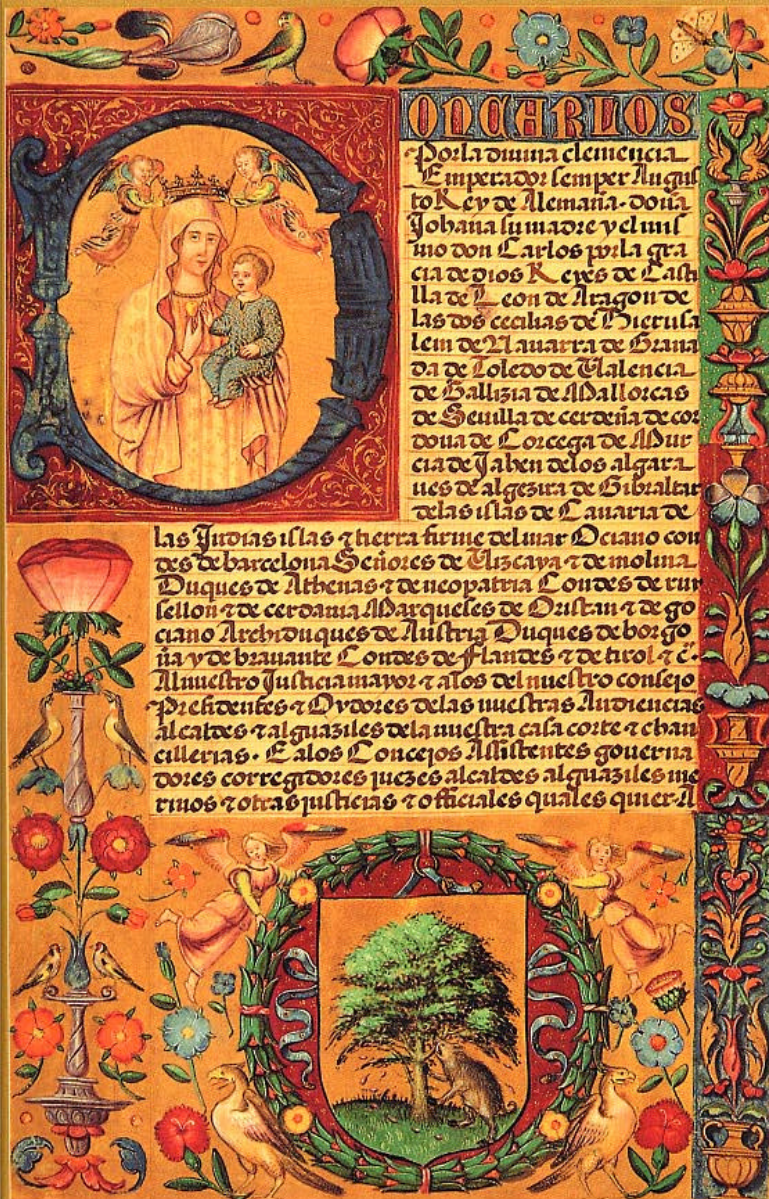 DON CARLOS
Por la divina clemencia
Emperador semper Augus
to Rey de Alemaña · doña
Johana su madre y el mis
mo don Carlos por la gra
cia de dios Reyes de Casti
lla de Leon de Aragon de
las dos cecilias de Hierusa
lem de Navarra de Grana
da de Toledo de Valencia
de Gallizia de Mallorcas
de Sevilla de cerdeña de cor
dova de Corcega de Mur
cia de Jahen de los algara
ves de algezira de Gibraltar
de las islas de Canaria de
las Indias islas ⁊ tierra firme del mar Oceano con
des de barcelona Señores de Vizcaya ⁊ de molina
Duques de Athenas ⁊ de neopatria Condes de ruy
sellon ⁊ de cerdania Marqueses de Oristan ⁊ de go
ciano Archiduques de Austria Duques de borgo
ña y de bravante Condes de flandes ⁊ de tirol ⁊ c̃
Al nuestro Justicia mayor ⁊ a los del nuestro consejo
Presidentes ⁊ Oydores de las nuestras Audiencias
alcaldes ⁊ alguaziles de la nuestra casa corte ⁊ chan
cillerias · E a los Concejos Assistentes governa
dores corregidores juezes alcaldes alguaziles me
rinos ⁊ otras justicias ⁊ officiales quales quier · A